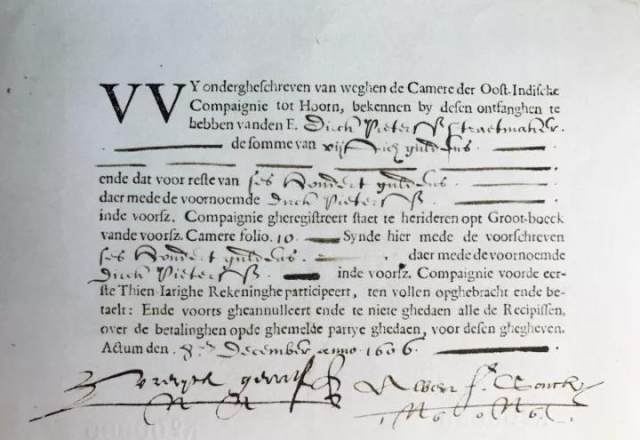 VVY ondergheschreven van weghen de Camere der Oost-Indische
Compaignie tot Hoorn, bekennen by desen ontfanghen te
hebben vanden E. Dirck Pietersz Straetmaker.
de somme van gulden
ende dat voor reste van ses hondert guldens.
daer mede de voornoemde Dirck Pietersz
inde voorsz. Compaignie gheregistreert staet te herideren opt Groot-boeck
vande voorsz. Camere folio. 10. Synde hier mede de voorschreven
ses hondert guldens. daer mede de voornoemde
Dirck Pietersz inde voorsz. Compaignie voorde eer-
ste Thien-Iarighe Rekeninghe participeert, ten vollen opghebracht ende be-
taelt: Ende voorts gheannulleert ende te niete ghedaen alle de Recipissen,
over de betalinghen opde ghemelde partye ghedaen, voor desen ghegheven.
Actum den. December anno. 1606.